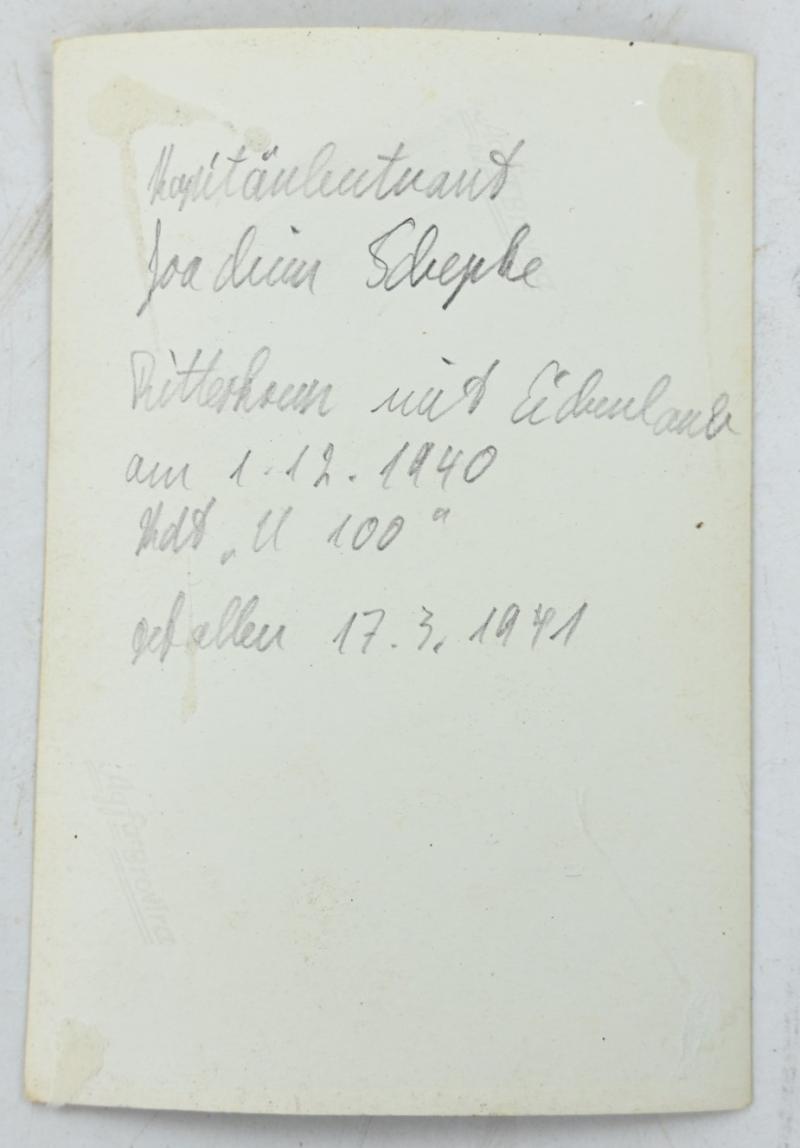 Kapitänleutnant
Joachim Schepke
Ritterkreuz mit Eichenlaub
am 1.12.1940
Kdt „U 100“
gefallen 17.3.1941
Agfa
Brovira